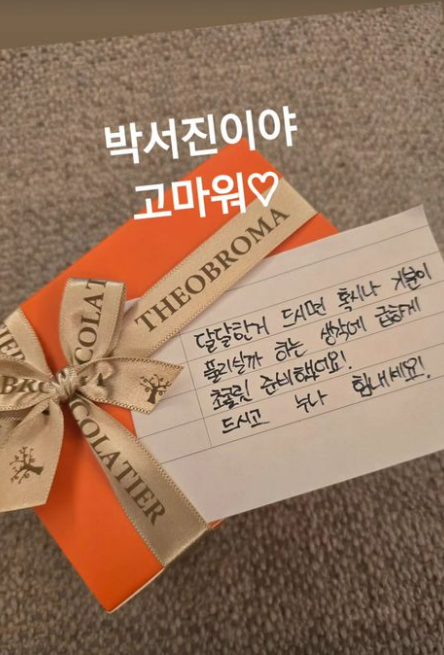 박서진이야
고마워♡
THEOBROMA
COLAT
BRO
COLATIER
달달한거 드시면 혹시나 기분이
풀리실까 하는 생각에 급하게
초콜릿 준비했어요!
드시고 누나 힘내세요!